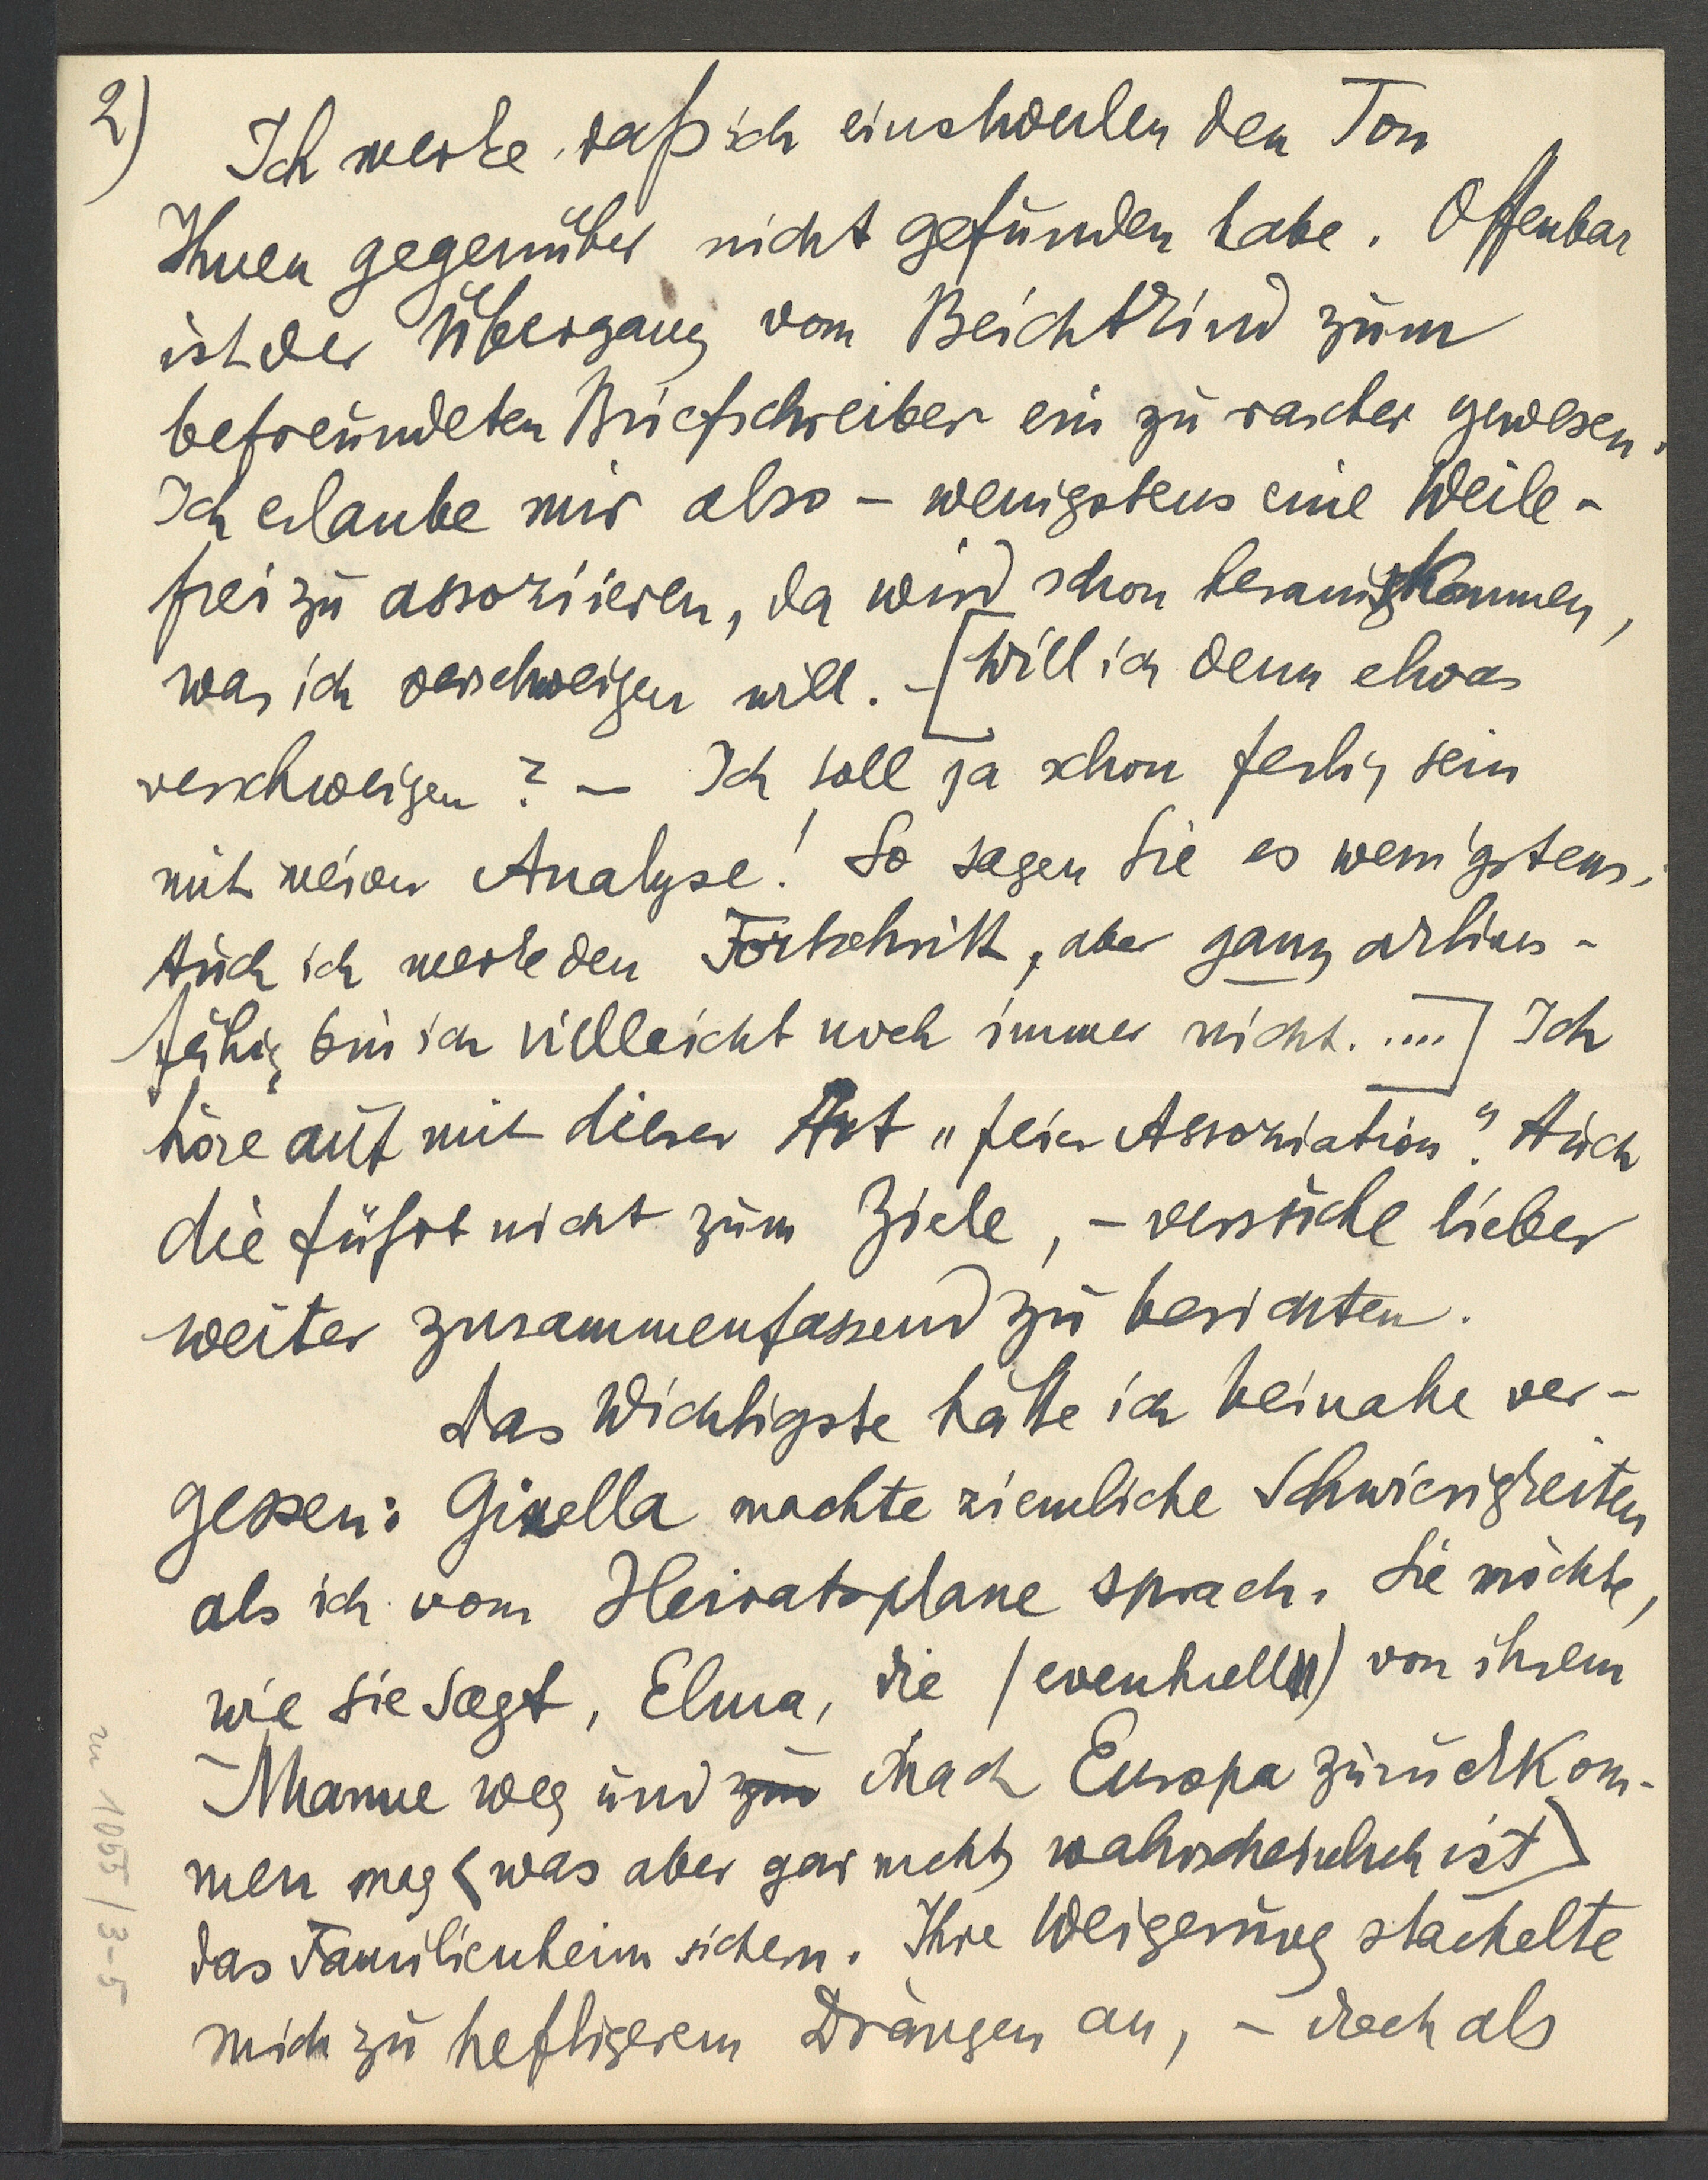 2)
Ich merke, daß ich einstweilen den Ton
Ihnen gegenüber nicht gefunden habe. Offenbar
ist der Übergang vom Beichtkind zum
befreundeten Briefschreiber ein zu rascher gewesen.
Ich erlaube mir also – wenigstens eine Weile –
frei zu assoziieren, da wird schon herauskommen,
was ich verschweigen will. – [Will ich denn etwas
verschweigen? – Ich soll ja schon fertig sein
mit meiner Analyse! So sagen Sie es wenigstens.
Auch ich merke den Fortschritt, aber ganz aktions-
fähig bin ich vielleicht noch immer nicht. ....] Ich
höre auf mit dieser Art „freier Assoziation“. Auch
die führt nicht zum Ziele, – versuche lieber
weiter zusammenfassend zu berichten.
Das Wichtigste hätte ich beinahe ver-
gessen: Gisella machte ziemliche Schwierigkeiten
als ich vom Heiratsplane sprach. Sie möchte,
wie sie sagt, Elma, die (eventuell) von ihrem
Manne weg und nach Europa zurückkom-
men mag (was aber gar nicht wahrscheinlich ist)
das Familienheim sichern. Ihre Weigerung stachelte
mich zu heftigerem Drängen an, – doch als
zu 1055/3-5